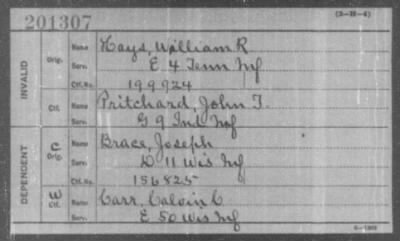 201307
(3-25-4)
INVALID
Orig.
Name Hays, William R
Serv. E 4 Tenn Inf
Ctf.No. 199924
Ctf.
Name Pritchard, John T.
Serv. G 9 Ind Inf
DEPENDENT
C
Orig.
Name Brace, Joseph
Serv. D 11 Wis Inf
Ctf.No. 156825
W
Ctf.
Name Carr, Calvin C
Serv. E 50 Wis Inf